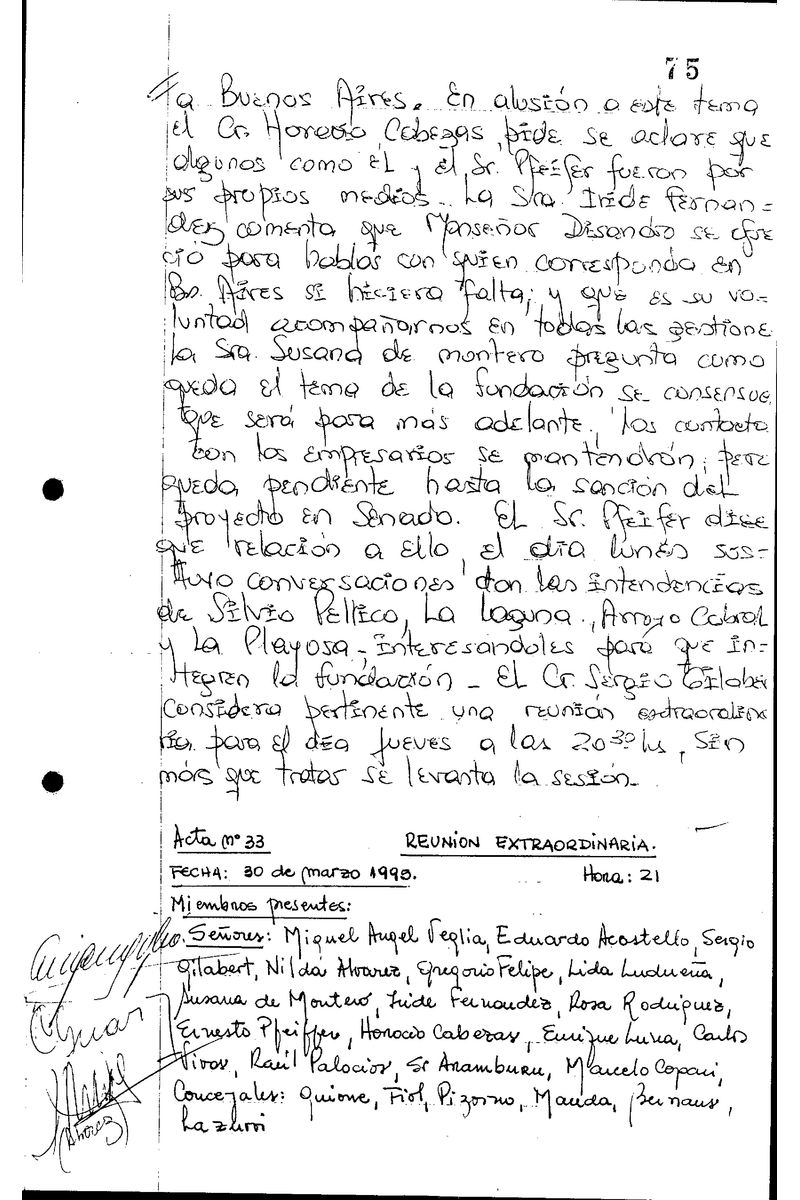 75
a Buenos Aires. En alusión a este tema
el Cr. Horacio Cabezas, pide se aclare que
algunos como EL y el Sr. Pfeifer fueron por
sus propios medios. La Sra. Iride Fernan=
dez comenta que Monseñor Disandro se ofre
ció para hablar con quien corresponda en
Bs. Aires si hiciera falta, y que es su vo-
luntad acompañarnos en todas las gestione
la Sra. Susana de montero pregunta como
queda el tema de la fundación se consensue
que será para más adelante, los contacto
con los empresarios se mantendrán, pero
queda pendiente hasta la sanción del
Proyecto en Senado. EL Sr. Pfeifer dice
que relación a ello, el día lunes sos-
tuvo conversaciones con las intendencias
de Silvio Pellico, La Laguna, Arroyo Cabral
y La Playosa, interesandoles para que in-
tegren la fundación - EL Cr. Sergio Gilaber
considera pertinente una reunión extraordina
ria para el día jueves a las 20³⁰ hs, Sin
más que tratar se levanta la sesión.
Acta nº 33 REUNION EXTRAORDINARIA.
FECHA: 30 de marzo 1995. Hora: 21
Miembros presentes:
Señores: Miguel Angel Veglia, Eduardo Acastello, Sergio
Gilabert, Nilda Alvarez, Gregorio Felipe, Lida Ludueña,
Susana de Montero, Iride Fernandez, Rosa Rodriguez,
Ernesto Pfeiffer, Horacio Cabezas, Enrique Luna, Carlos
Vivas, Raúl Palacios, Sr Aramburu, Marcelo Copari,
Concejales: Guione, Fiol, Pizorno, Manda, Bernaus,
Alvarez